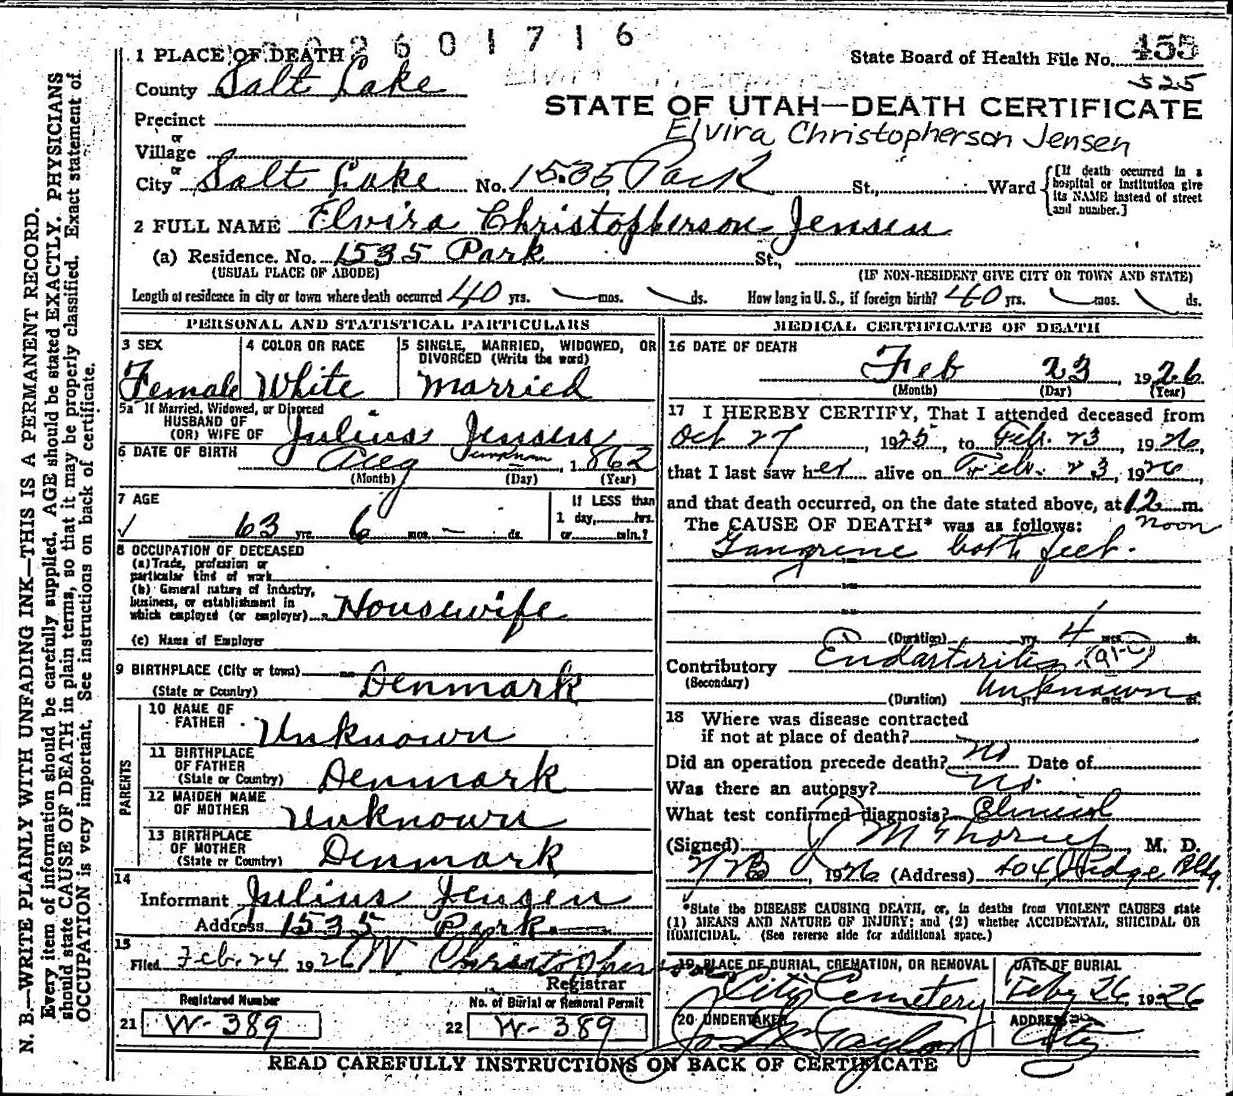 2601716
1 PLACE OF DEATH
State Board of Health File No. 455
525
County Salt Lake
STATE OF UTAH—DEATH CERTIFICATE
Elvira Christopherson Jensen
Precinct
or
Village
or
City Salt Lake No. 1535 Park St., Ward
[If death occurred in a hospital or institution give its NAME instead of street and number.]
2 FULL NAME Elvira Christopherson Jensen
(a) Residence. No. 1535 Park St.,
(USUAL PLACE OF ABODE) (IF NON-RESIDENT GIVE CITY OR TOWN AND STATE)
Length of residence in city or town where death occurred 40 yrs. mos. ds. How long in U. S., if foreign birth? 40 yrs. mos. ds.
PERSONAL AND STATISTICAL PARTICULARS
3 SEX
Female
4 COLOR OR RACE
White
5 SINGLE, MARRIED, WIDOWED, OR DIVORCED (Write the word)
Married
5a If Married, Widowed, or Divorced
HUSBAND OF
(OR) WIFE OF Julius Jensen
6 DATE OF BIRTH Aug unknown, 1862
(Month) (Day) (Year)
7 AGE
63 yrs. 6 mos. — ds.
If LESS than
1 day, hrs.
or min.?
8 OCCUPATION OF DECEASED
(a) Trade, profession or
particular kind of work
(b) General nature of industry,
business, or establishment in
which employed (or employer) Housewife
(c) Name of Employer
9 BIRTHPLACE (City or town)
(State or Country) Denmark
PARENTS
10 NAME OF
FATHER Unknown
11 BIRTHPLACE
OF FATHER
(State or Country) Denmark
12 MAIDEN NAME
OF MOTHER Unknown
13 BIRTHPLACE
OF MOTHER
(State or Country) Denmark
14
Informant Julius Jensen
Address 1535 Park
15
Filed Feb. 24 1926 W. Christopherson
Registrar
Registered Number
21 W-389
No. of Burial or Removal Permit
22 W-389
MEDICAL CERTIFICATE OF DEATH
16 DATE OF DEATH
Feb 23, 1926
(Month) (Day) (Year)
17 I HEREBY CERTIFY, That I attended deceased from
Oct 27, 1925, to Feb. 23, 1926,
that I last saw her alive on Feb. 23, 1926,
and that death occurred, on the date stated above, at 12 m.
noon
The CAUSE OF DEATH* was as follows:
Gangrene both feet.
(Duration) yrs. 4 mos. ds.
Contributory Endarteritis (91-C)
(Secondary)
(Duration) Unknown yrs. mos. ds.
18 Where was disease contracted
if not at place of death?
Did an operation precede death? No Date of
Was there an autopsy? No.
What test confirmed diagnosis? Clinical
(Signed) M. D.
1926 (Address) 404 Judge Bldg.
*State the DISEASE CAUSING DEATH, or, in deaths from VIOLENT CAUSES state
(1) MEANS AND NATURE OF INJURY; and (2) whether ACCIDENTAL, SUICIDAL OR
HOMICIDAL. (See reverse side for additional space.)
19 PLACE OF BURIAL, CREMATION, OR REMOVAL
City Cemetery
DATE OF BURIAL
Feby 26, 1926
20 UNDERTAKER
Jos. Taylor
ADDRESS
City
READ CAREFULLY INSTRUCTIONS ON BACK OF CERTIFICATE
N. B.—WRITE PLAINLY WITH UNFADING INK—THIS IS A PERMANENT RECORD.
Every item of information should be carefully supplied. AGE should be stated EXACTLY. PHYSICIANS
should state CAUSE OF DEATH in plain terms, so that it may be properly classified. Exact statement of
OCCUPATION is very important. See instructions on back of certificate.